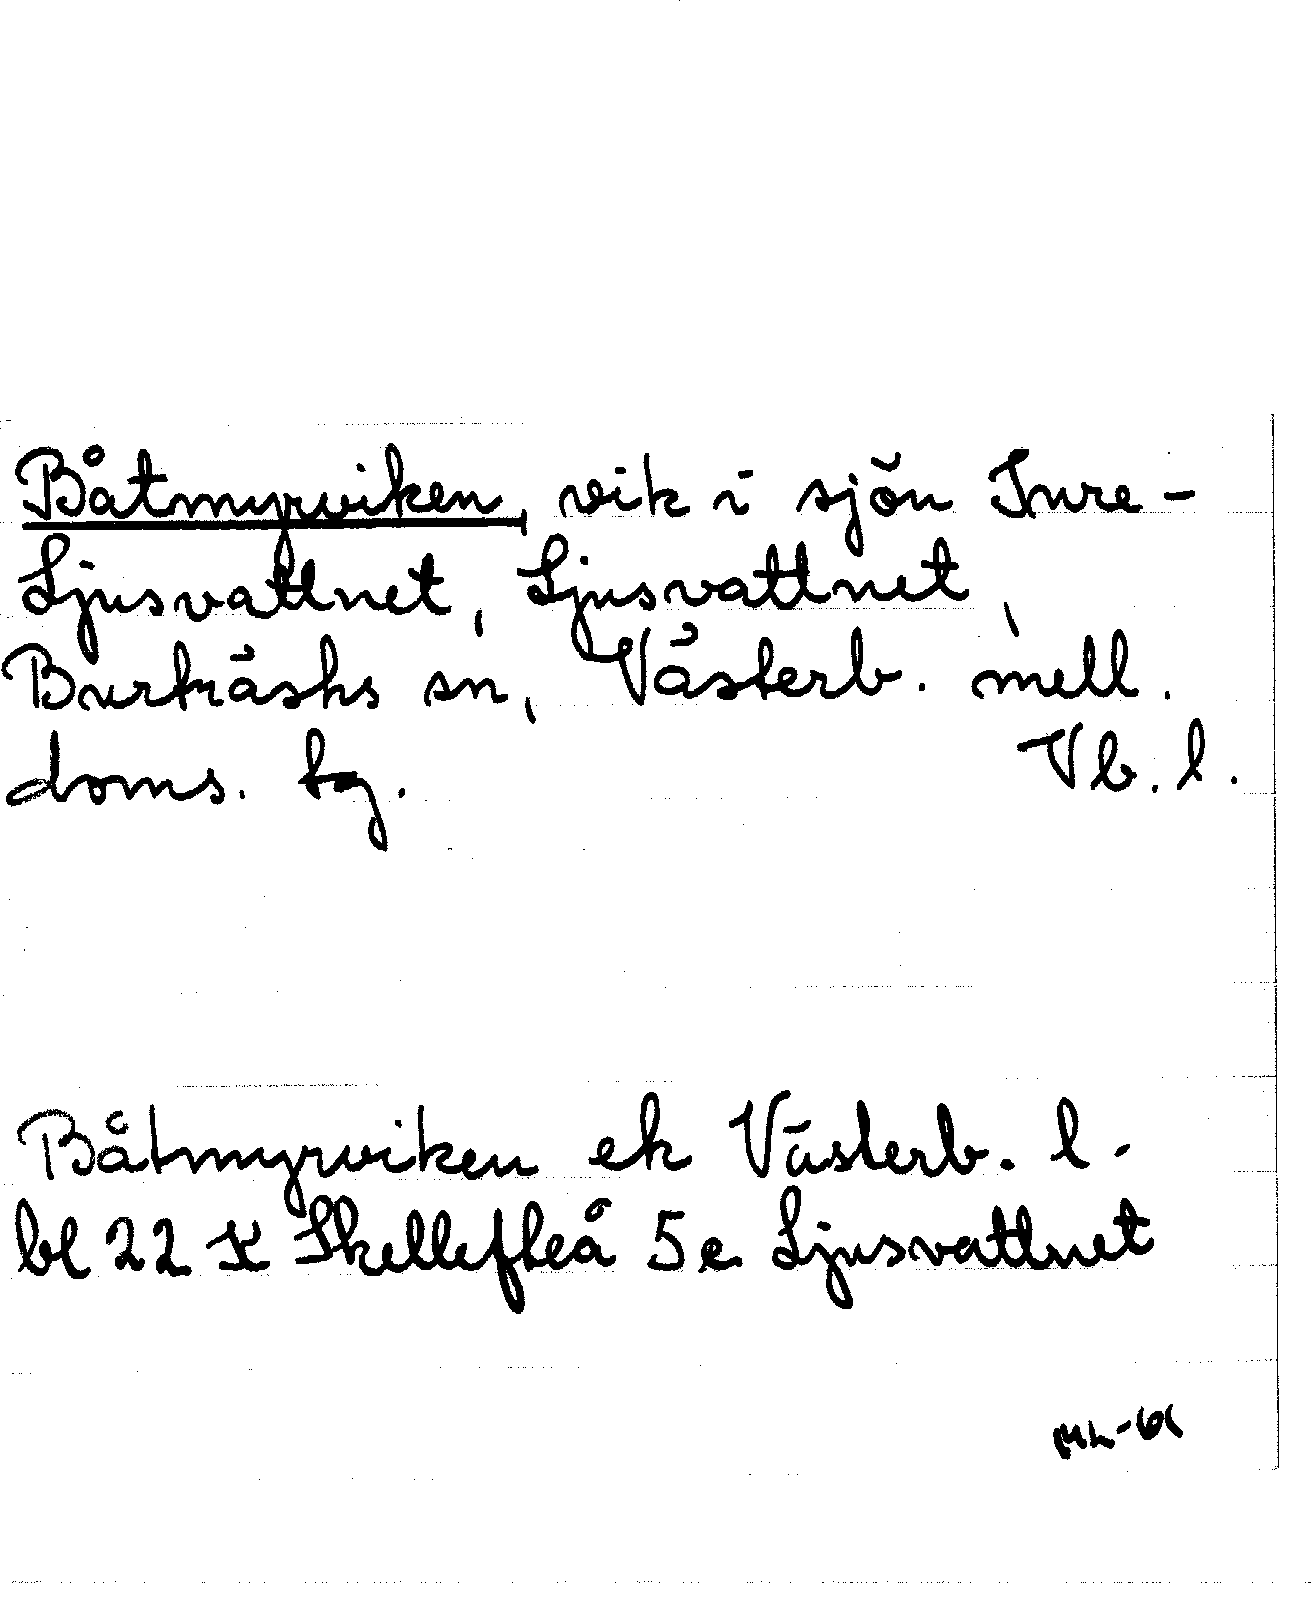 Båtmyrviken, vik i sjön Inre-
Ljusvattnet, Ljusvattnet,
Burträsks sn, Västerb. mell.
doms. tg. Vb. l.
Båtmyrviken ek Västerb. l.
bl 22 K Skellefteå 5e Ljusvattnet
ML-61